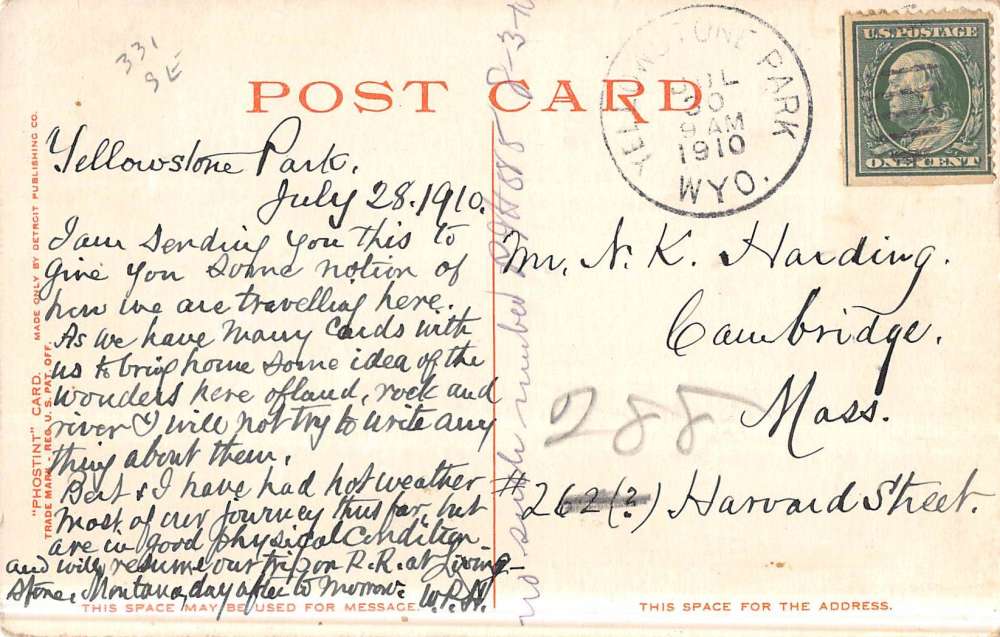 331
SE
POST CARD
YELLOWSTONE PARK
JUL
30
9 AM
1910
WYO.
U.S. POSTAGE
ONE CENT
"PHOSTINT" CARD. MADE ONLY BY DETROIT PUBLISHING CO.
TRADE MARK - REG. U. S. PAT. OFF.
Yellowstone Park.
July 28. 1910.
I am sending you this to
give you some notion of
how we are travelling here.
As we have many cards with
us to bring home some idea of the
wonders here of land, rock and
river I will not try to write any
thing about them.
Bert & I have had hot weather
most of our journey thus far, but
are in good physical condition
and will resume our trip on R.R. at Living-
stone, Montana, day after to morrow. W.P.H.
no such number
8-3-
Mr. N. K. Harding.
Cambridge.
Mass.
# 262 (?) Harvard Street.
288
THIS SPACE MAY BE USED FOR MESSAGE.
THIS SPACE FOR THE ADDRESS.